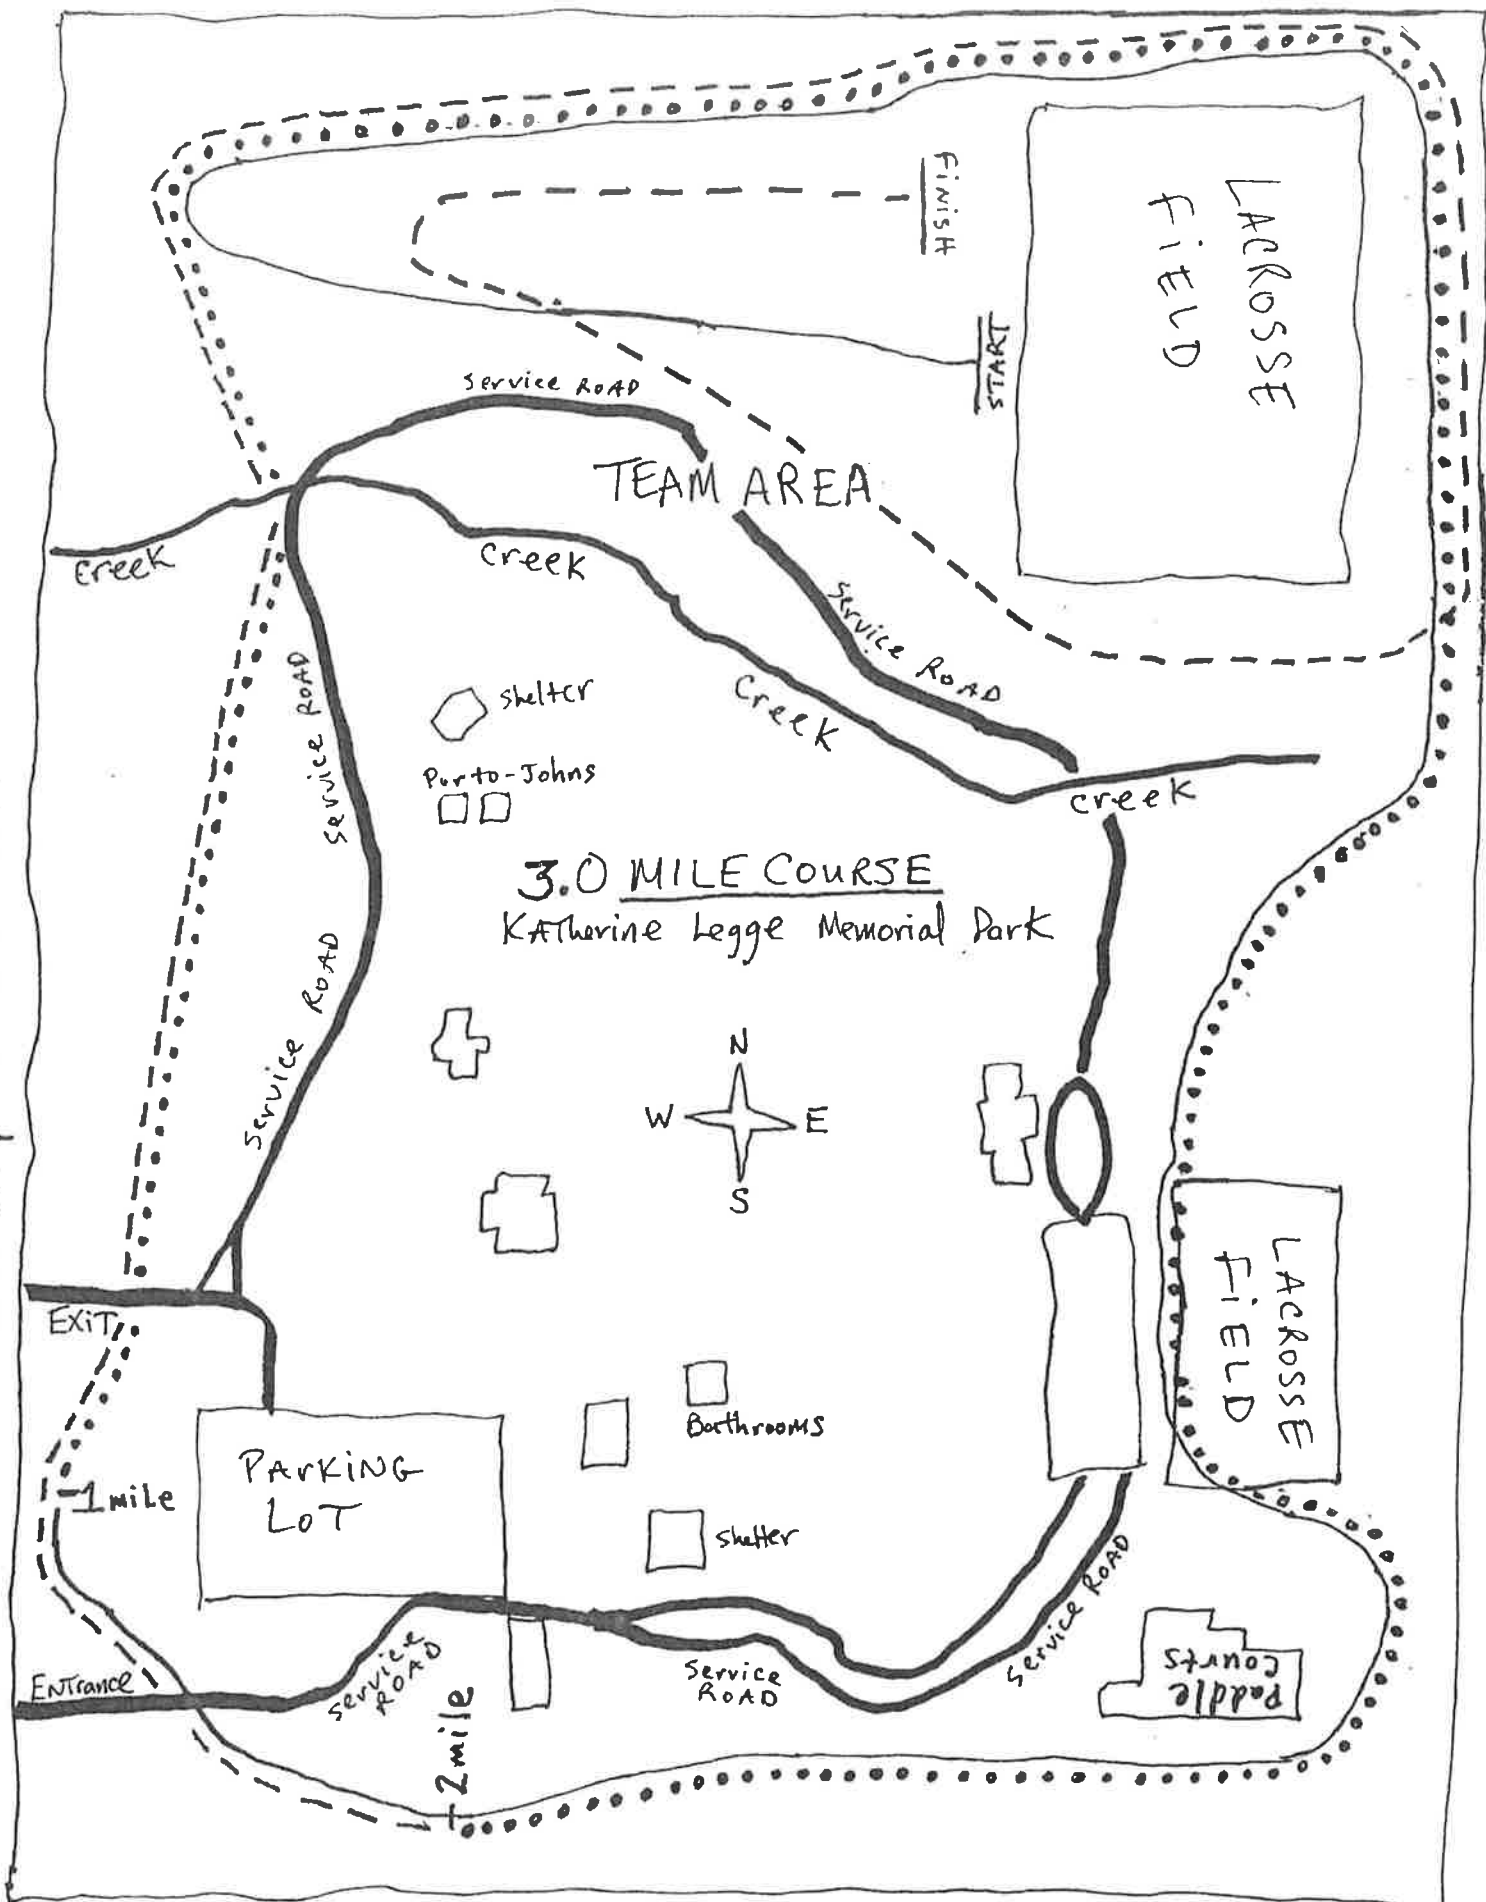 FiNiSH
LACROSSE
FiELD
START
Service ROAD
TEAM AREA
Creek
Creek
Service ROAD
Service ROAD
Creek
Shelter
Porto-Johns
Creek
3.0 MILE COURSE
KATherine Legge Memorial Park
Service ROAD
N
W E
S
EXiT
LACROSSE
FiELD
Bathrooms
PArKiNG
LoT
1 mile
Shelter
Service ROAD
Paddle
Courts
ENTrance
Service
ROAD
Service
ROAD
2 mile